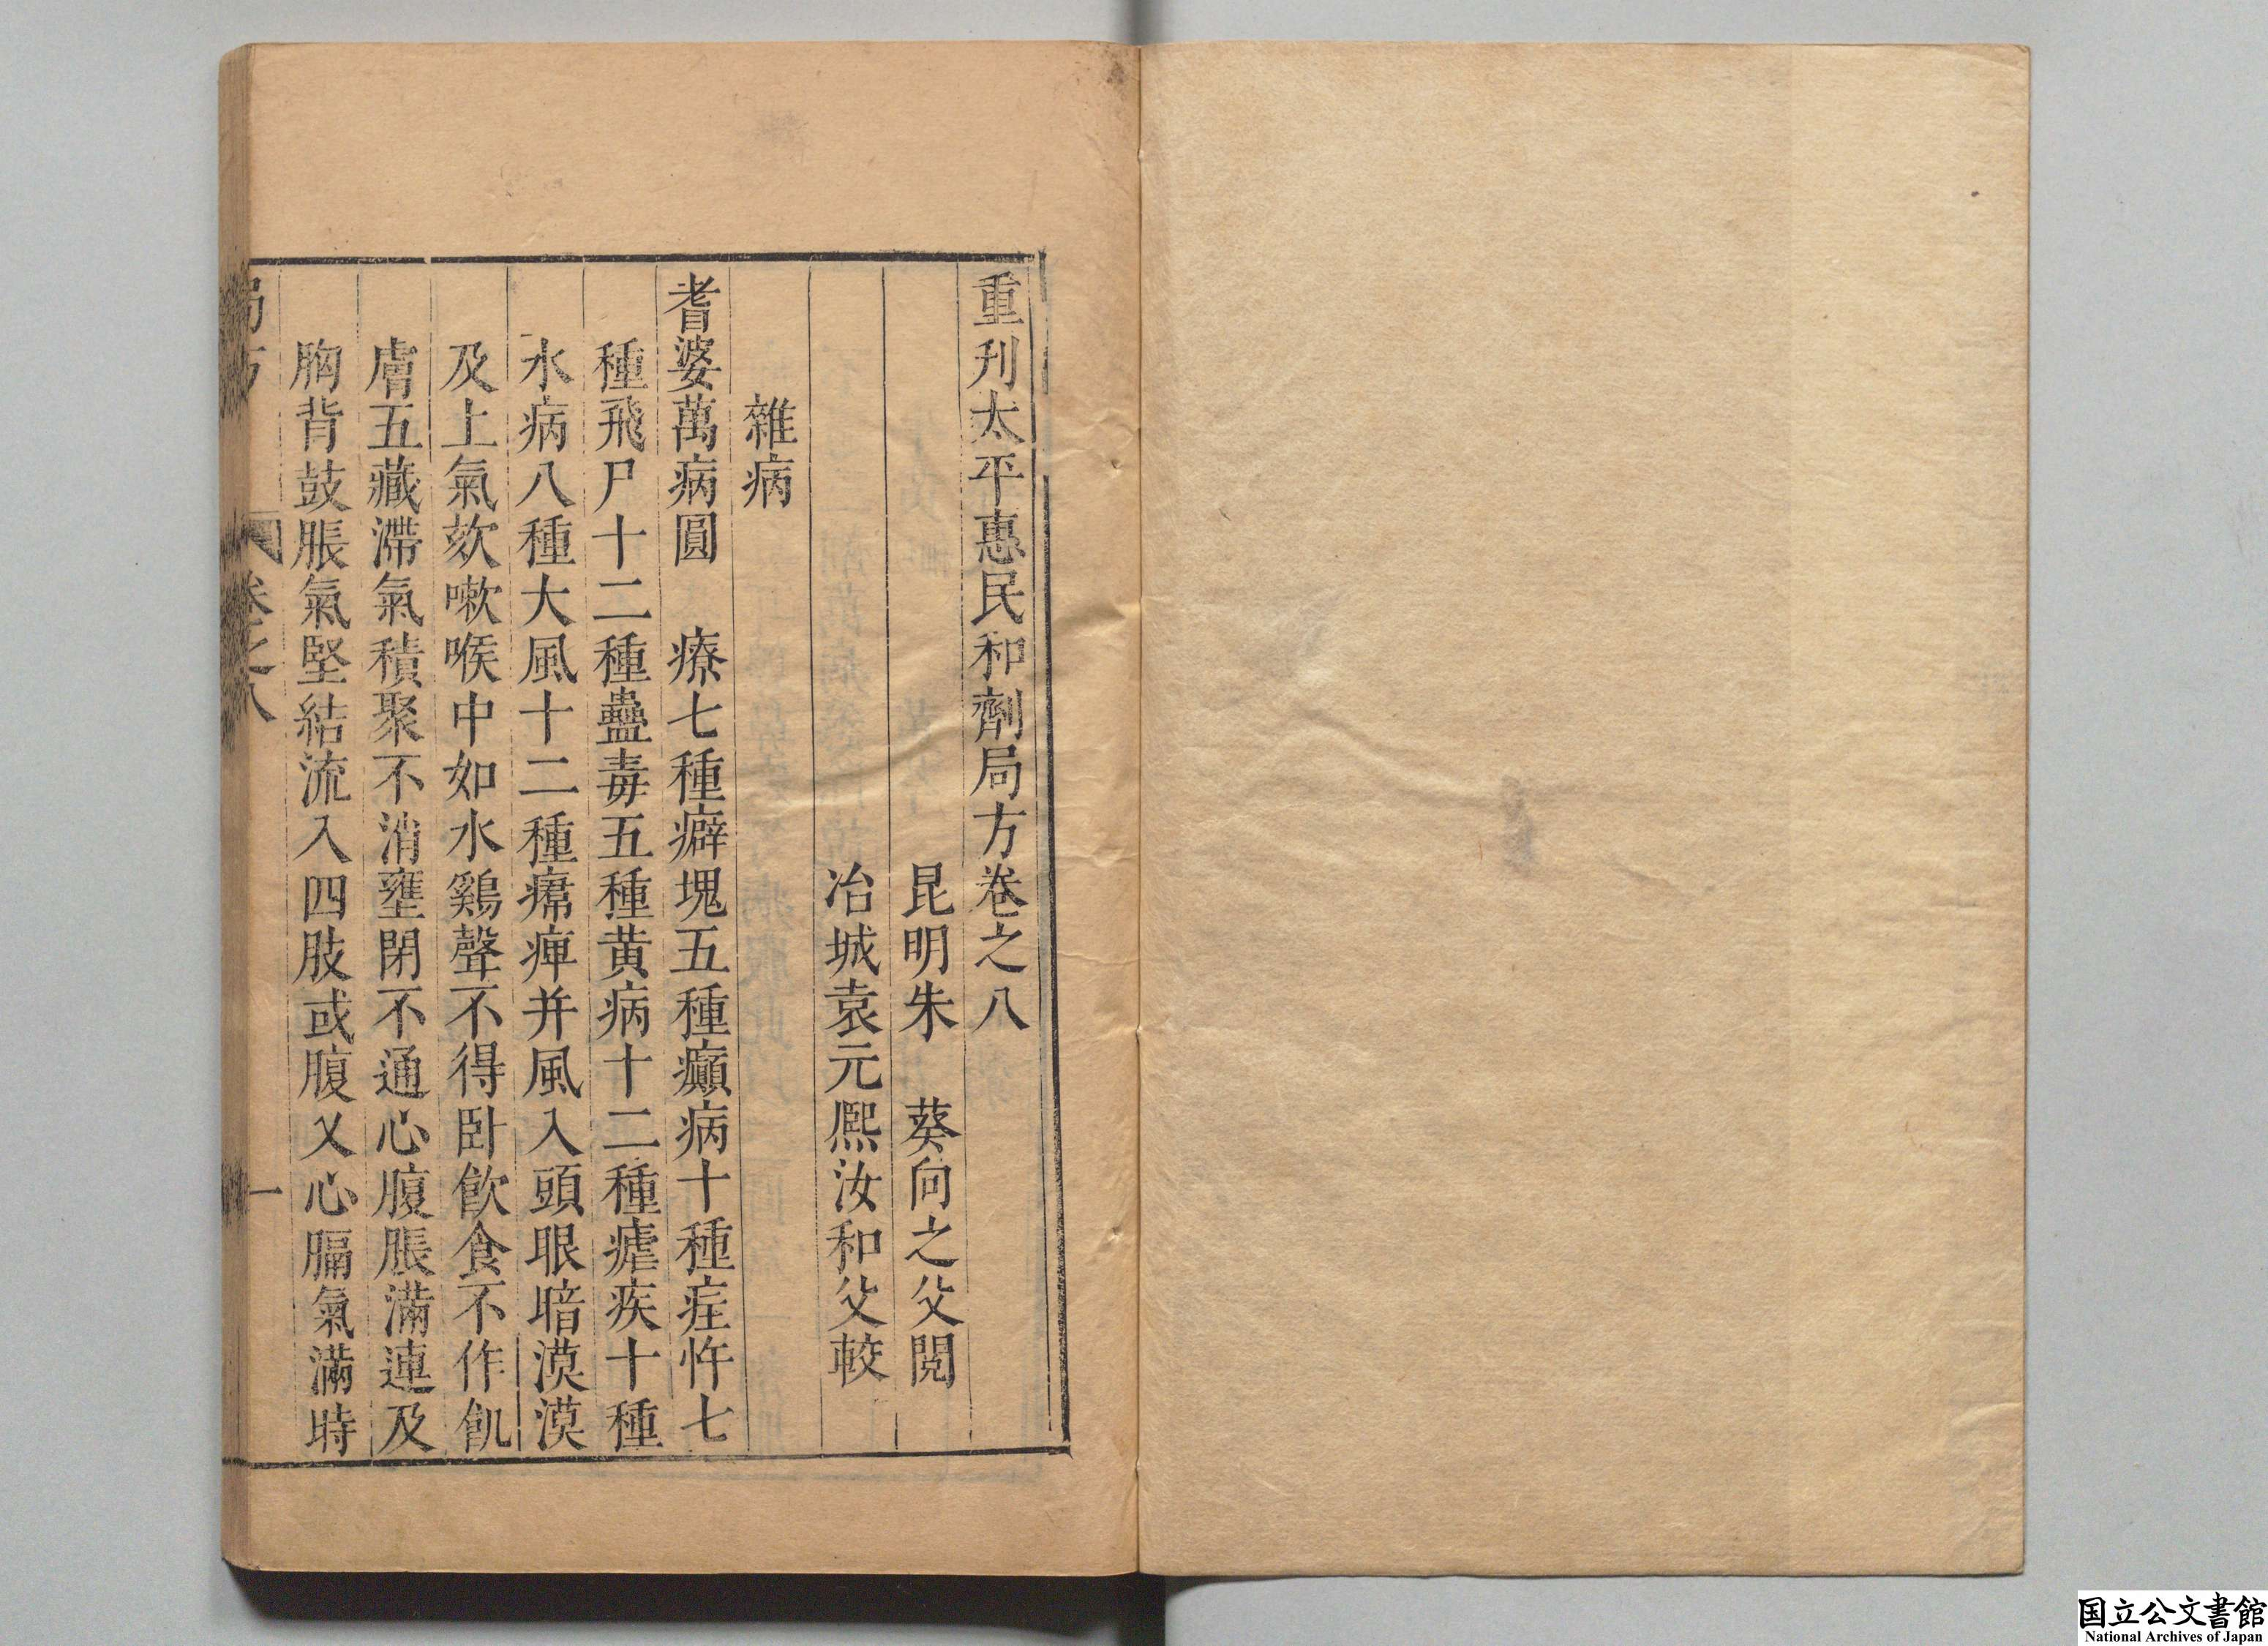 重刋太平惠民和劑局方卷之八
昆明朱　葵向之父閱
冶城袁元熈汝和父較
雜病
耆婆萬病圓　療七種癖塊五種癲病十種疰忤七
種飛尸十二種蠱毒五種黄病十二種瘧疾十種
水病八種大風十二種𤸷痺并風入頭眼暗漠漠
及上氣欬嗽喉中如水鷄聲不得卧飮食不作飢
膚五藏滯氣積聚不消壅閉不通心腹脹滿連及
胸背鼓脹氣堅結流入四肢或腹乂心膈氣滿時
局方　卷之八　一
国立公文書館
National Archives of Japan